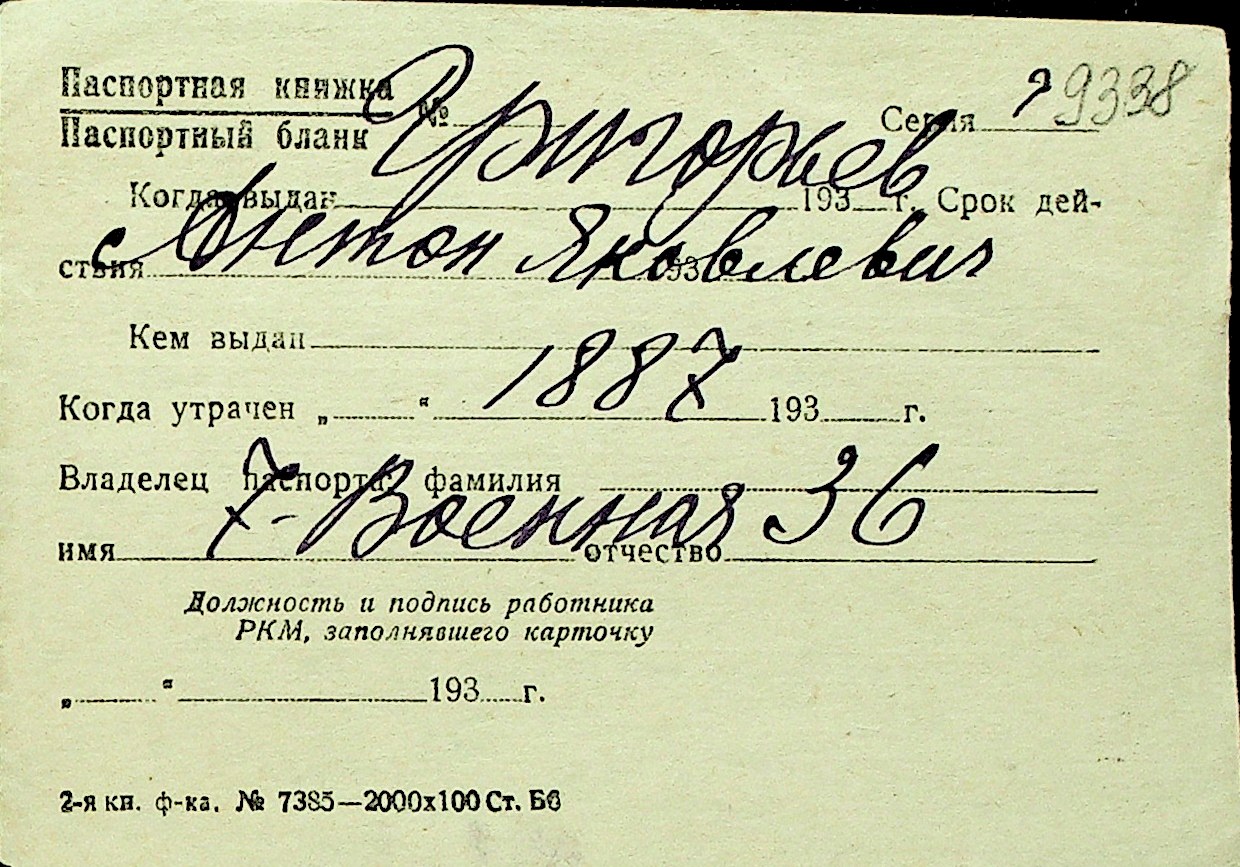 Паспортная книжка
Паспортный бланк
№ Серия 9338
Григорьев
Когда выдан 193 г. Срок дей-
Антон Яковлевич
ствия 193
Кем выдан
1887
Когда утрачен „ “ 193 г.
Владелец паспорта: фамилия
7-Военная 36
имя отчество
Должность и подпись работника
РКМ, заполнявшего карточку
„ “ 193 г.
2-я кн. ф-ка. № 7385—2000х100 Ст. Бб